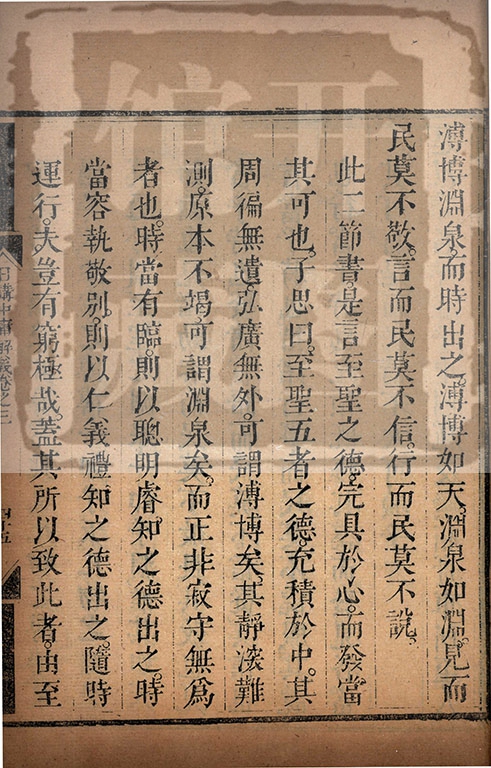 溥博淵泉。而時出之。溥博如天。淵泉如淵。見而
民莫不敬。言而民莫不信。行而民莫不說。
此二節書。是言至聖之德。完具於心。而發當
其可也。子思曰。至聖五者之德。充積於中。其
周徧無遺。弘廣無外。可謂溥博矣。其靜深難
測。原本不竭。可謂淵泉矣。而正非寂守無爲
者也。時當有臨。則以聰明睿知之德出之。時
當容執敬別。則以仁義禮知之德出之。隨時
運行。夫豈有窮極哉。蓋其所以致此者。由至
日講中庸解義卷之三
四十五